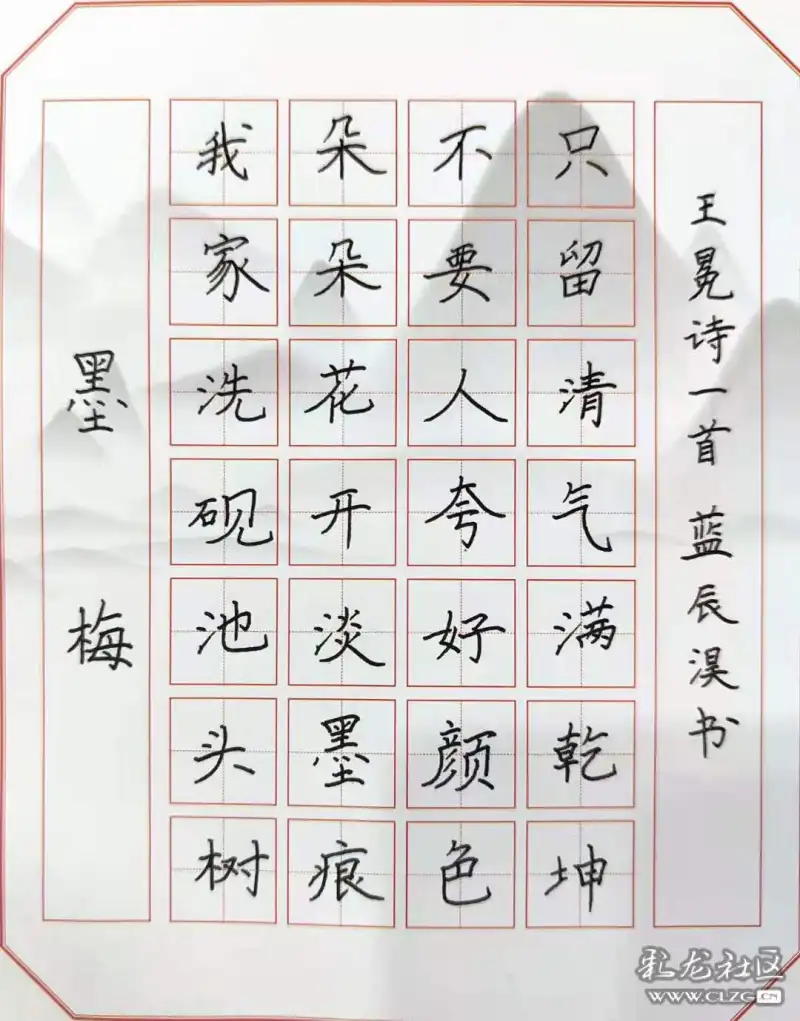 墨梅
我家洗砚池头树
朵朵花开淡墨痕
不要人夸好颜色
只留清气满乾坤
王冕诗一首 蓝辰淏书
彩龙社区
www.CLZG.CN